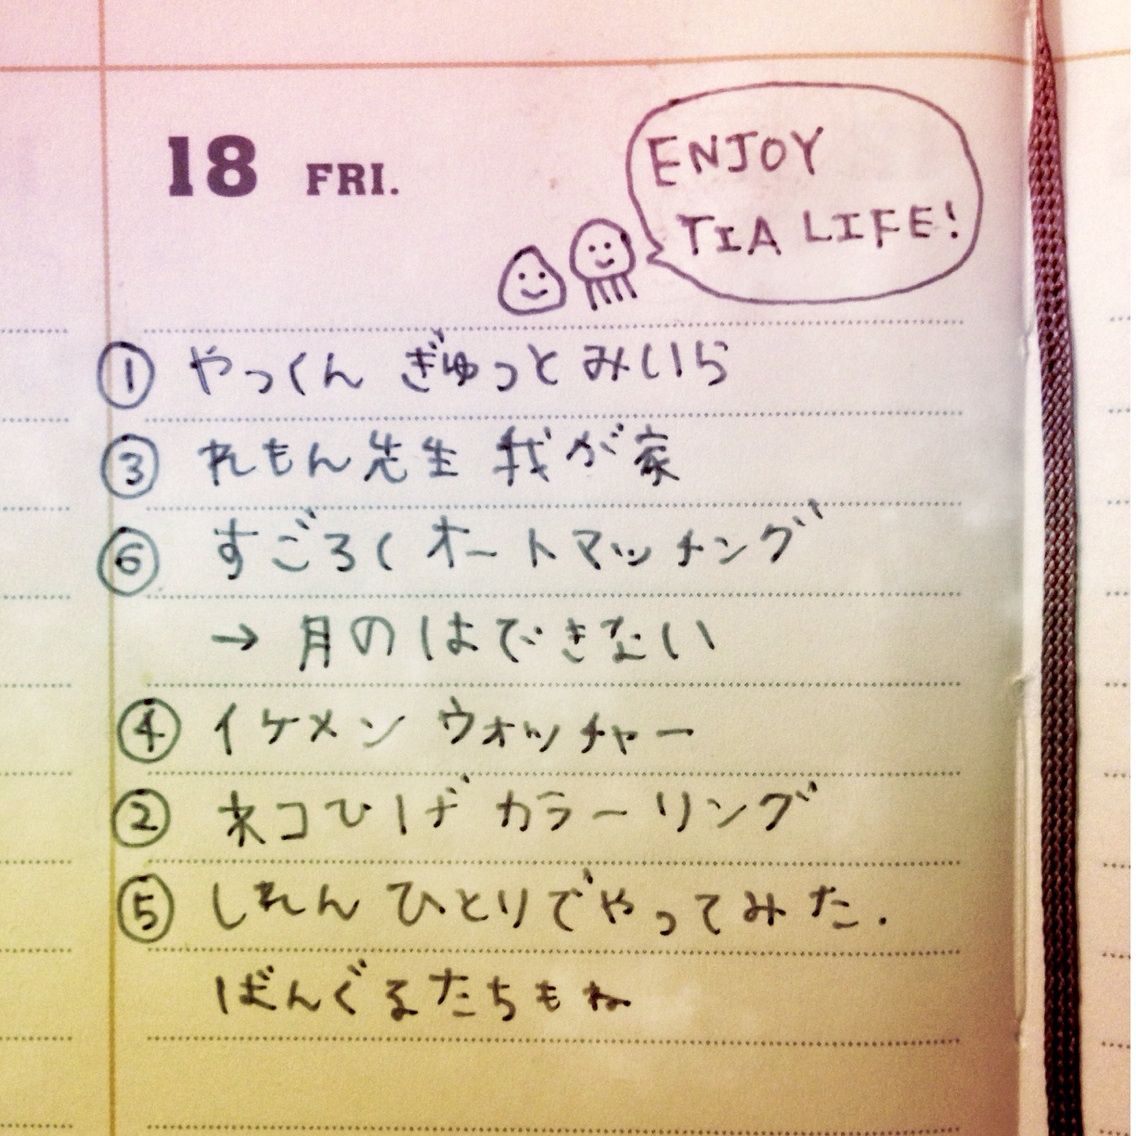 18 FRI.
ENJOY
TIA LIFE!
① やっくん ぎゅっと みいら
③ れもん先生 我が家
⑥ すごろく オートマッチング
→ 月のはできない
④ イケメン ウォッチャー
② ネコひげ カラーリング
⑤ しれん ひとりでやってみた.
ばんぐるたちもね